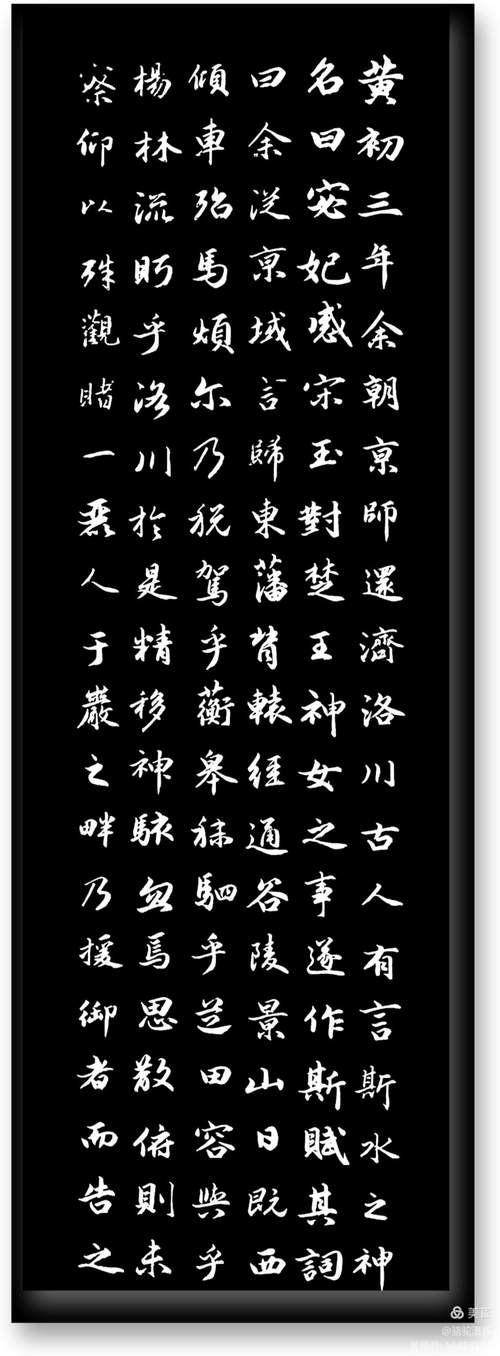 黄初三年余朝亰師還濟洛川古人有言斯水之神
名曰宓妃感宋玉對楚王神女之事遂作斯賦其詞
曰余從亰域言歸東藩背轅經通谷陵景山日既西
傾車殆馬煩尔乃税駕乎蘅皋秣駟乎芝田容與乎
楊林流眄乎洛川於是精移神駭忽焉思散俯則未
察仰以殊觀睹一麗人于巖之畔乃援御者而告之
美篇